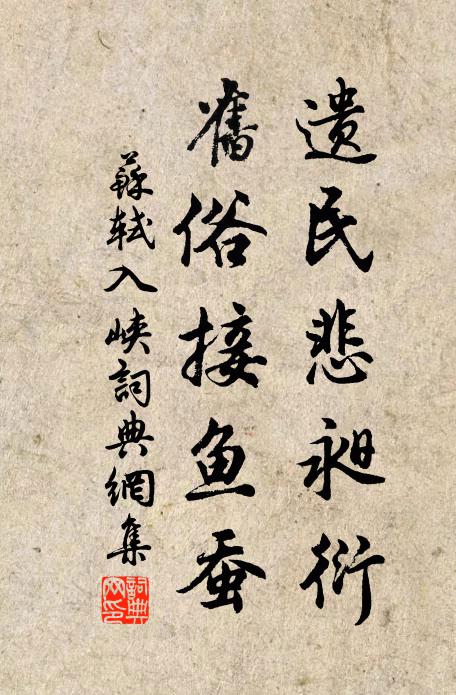 遗民悲昶衍
舊俗接鱼蚕
蘇軾入峡詞典網集
詞典网印